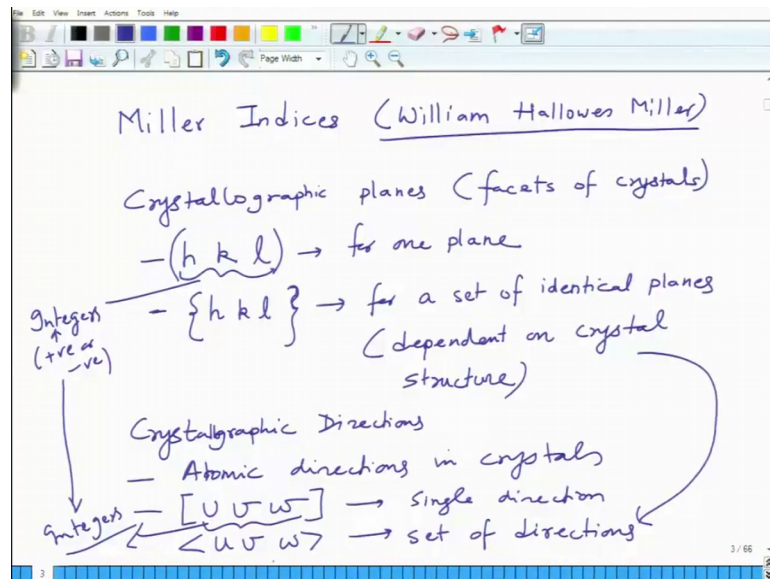 File Edit View Insert Actions Tools Help
B I
Page Width
Miller Indices (William Hallowes Miller)
Crystallographic planes (facets of crystals)
- (h k l) → for one plane
- {h k l} → for a set of identical planes
Integers
(+ve or
-ve)
(dependent on crystal
structure)
Crystallgraphic Directions
- Atomic directions in crystals
Integers - [u v w] → single direction
<u v w> → set of directions
3 / 66
3